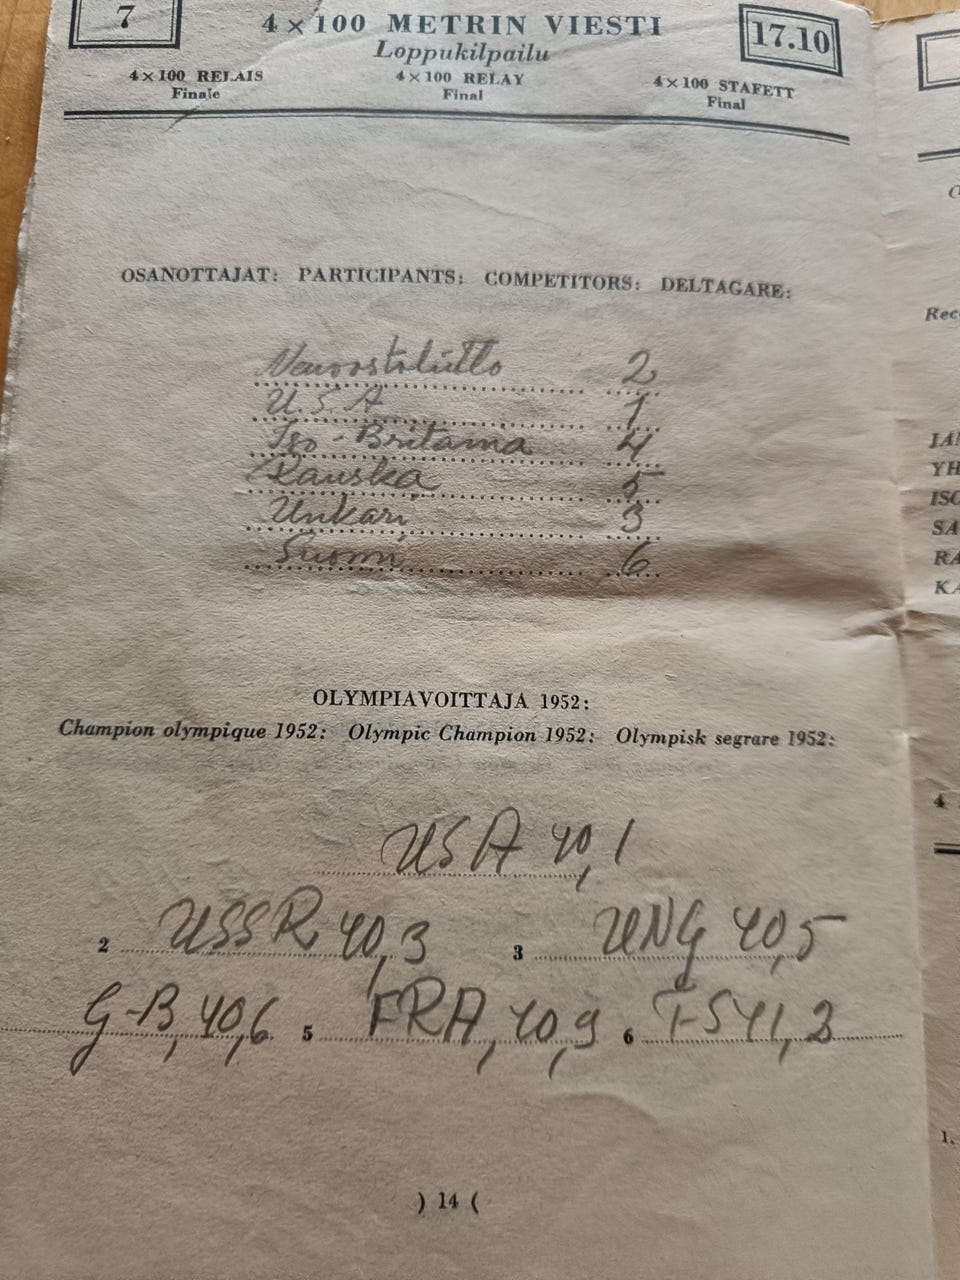 7
4×100 METRIN VIESTI
17.10
Loppukilpailu
4×100 RELAIS 4×100 RELAY 4×100 STAFETT
Finale Final Final
OSANOTTAJAT: PARTICIPANTS: COMPETITORS: DELTAGARE:
Neuvostoliitto 2
U.S.A 1
Iso-Britania 4
Ranska 5
Unkari 3
Suomi 6
OLYMPIAVOITTAJA 1952:
Champion olympique 1952: Olympic Champion 1952: Olympisk segrare 1952:
USA 40,1
2 USSR 40,3 3 UNG 40,5
G-B, 40,6 5 FRA, 40,9 6 41,2
) 14 (
Rec
IAN
YH
ISO
SA
RA
KA
4
1.